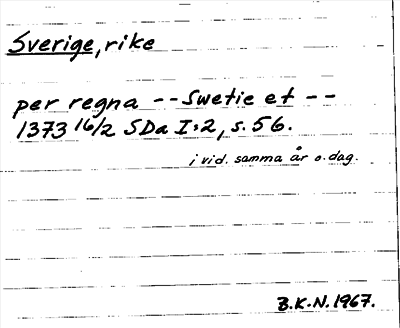 Sverige, rike
per regna -- Swetie et --
1373 16/2 SDa I:2, s. 56.
i vid. samma år o. dag.
B.K.N. 1967.